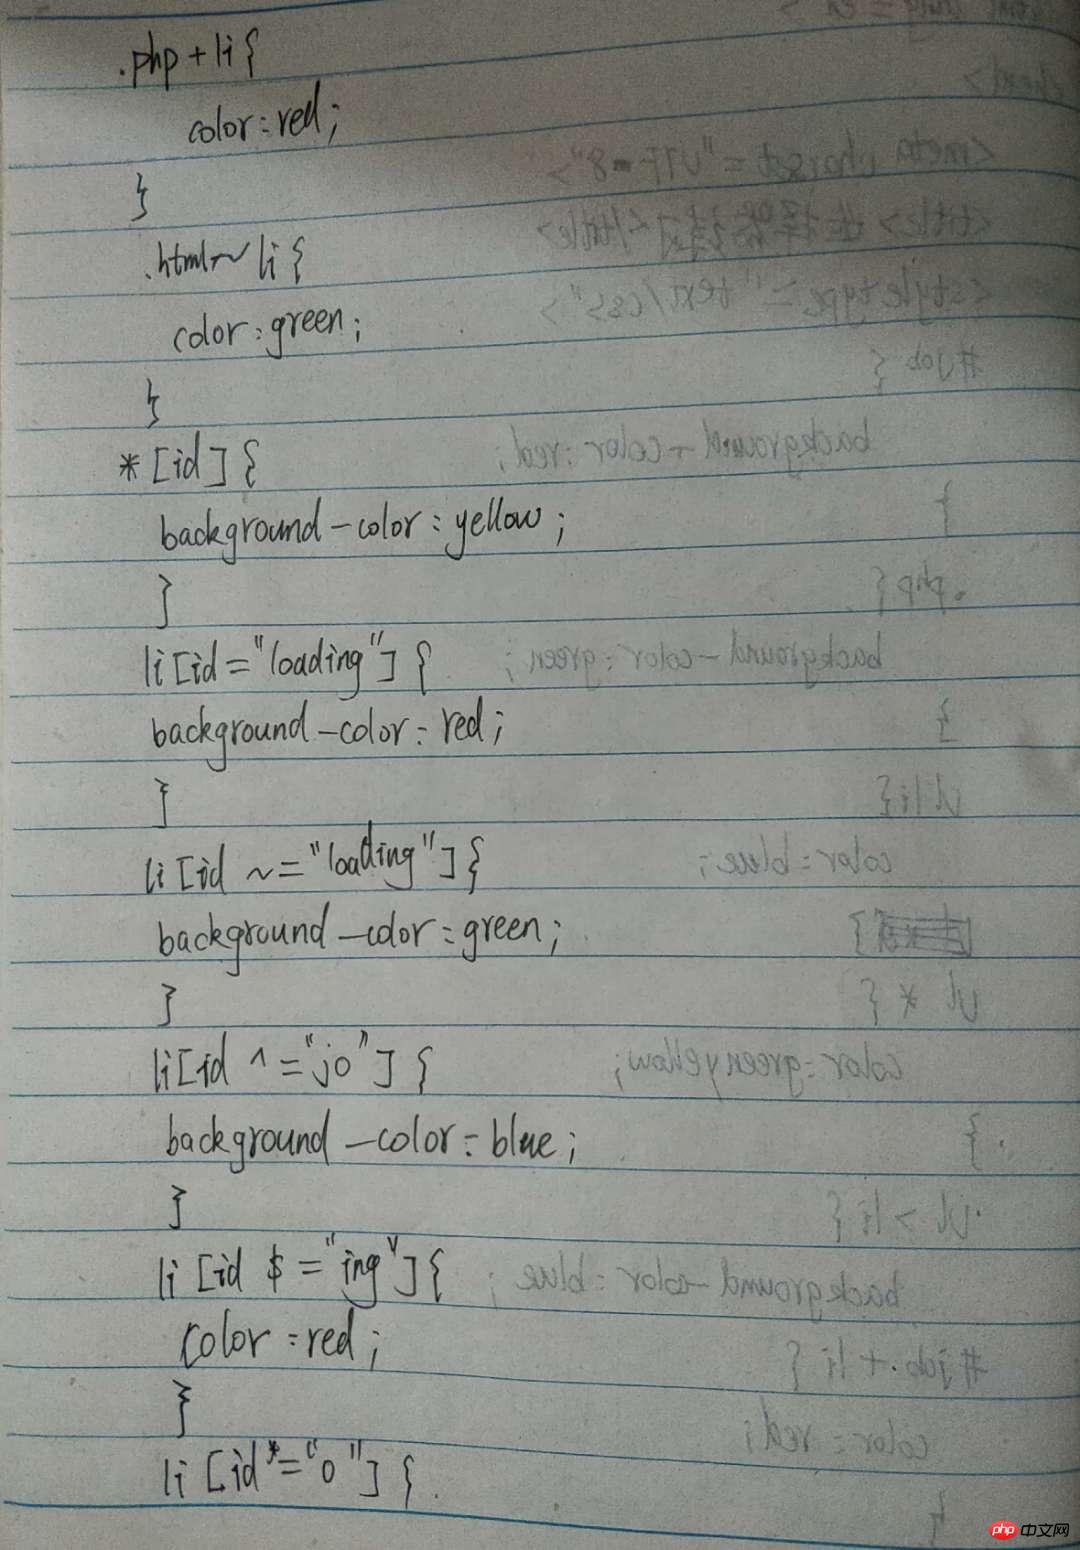 .php+li{
color:red;
}
.html~li{
color:green;
}
*[id]{
background-color:yellow;
}
li[id="loading"]{
background-color:red;
}
li[id ~="loading"]{
background-color:green;
}
li[id ^="jo"]{
background-color:blue;
}
li[id $="ing"]{
color:red;
}
li[id*="o"]{
php 中文网